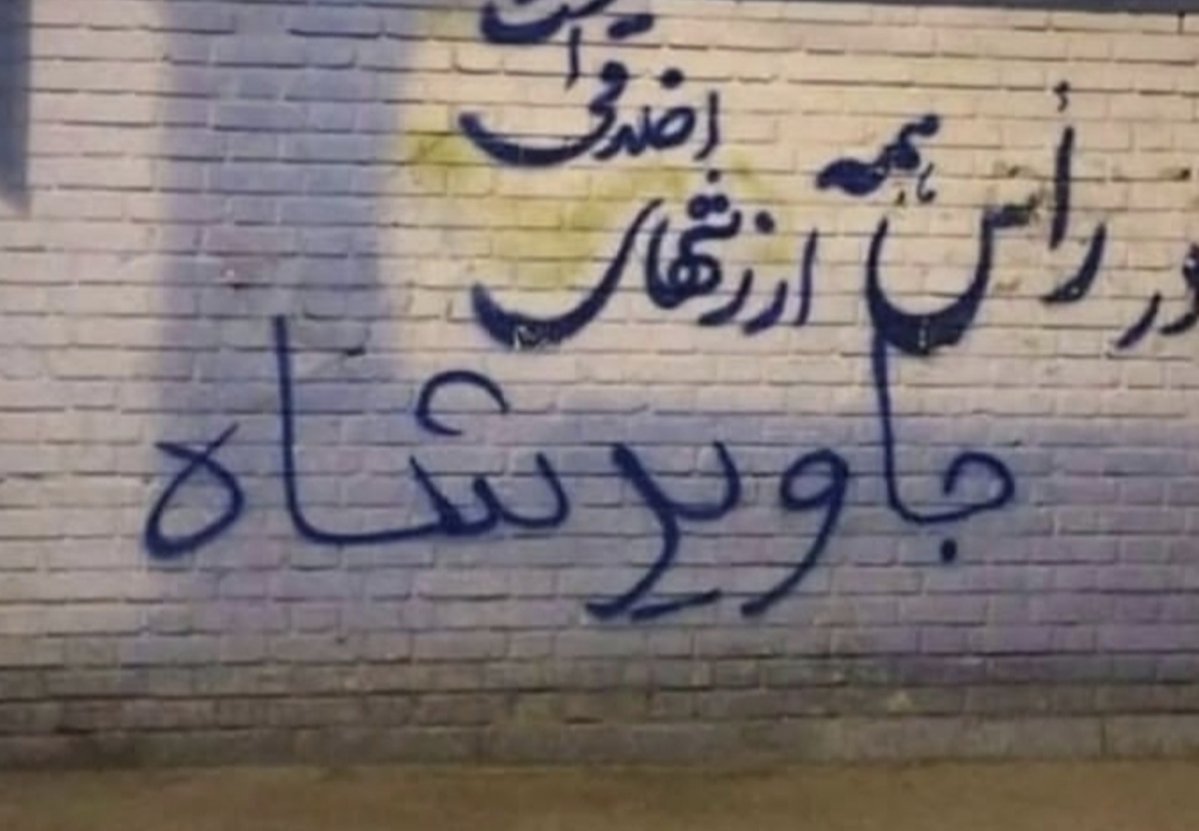 در رأس همه
ارزشهای
اخلاقی
است
جاوید شاه